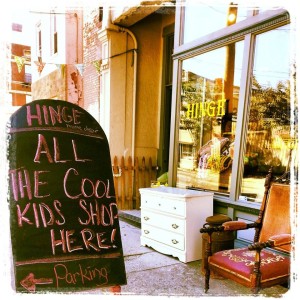 HINGE
ALL
THE COOL
KIDS SHOP
HERE!
Parking
HINGE